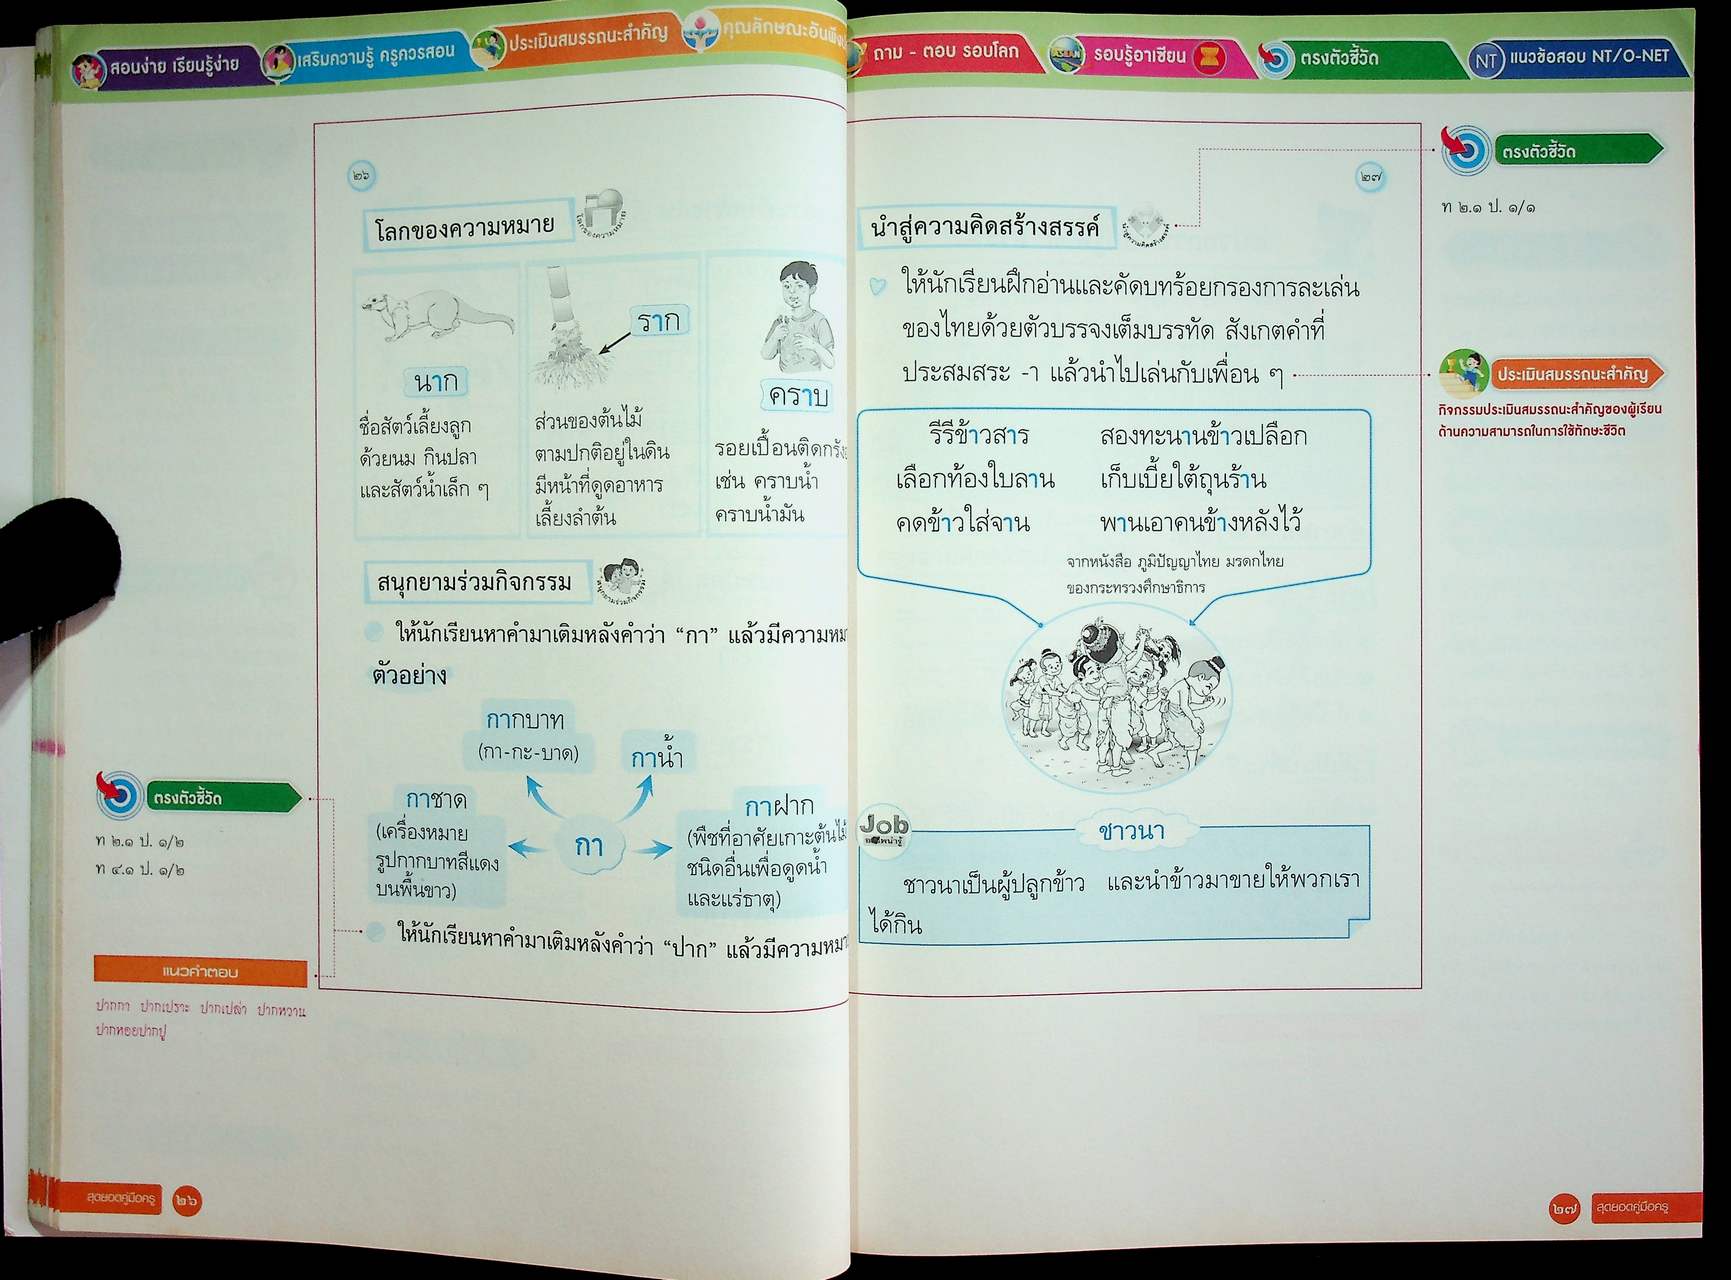 สอนง่าย เรียนรู้ง่าย
เสริมความรู้ ครูควรสอน
ประเมินสมรรถนะสำคัญ
๒๖
โลกของความหมาย
นาก
ชื่อสัตว์เลี้ยงลูก
ด้วยนม กินปลา
และสัตว์น้ำเล็ก ๆ
ราก
ส่วนของต้นไม้
ตามปกติอยู่ในดิน
มีหน้าที่ดูดอาหาร
เลี้ยงลำต้น
คราบ
รอยเปื้อนติดกรัง
เช่น คราบน้ำ
คราบน้ำมัน
สนุกยามร่วมกิจกรรม
ให้นักเรียนหาคำมาเติมหลังคำว่า “กา” แล้วมีความหม
ตัวอย่าง
กากบาท
(กา-กะ-บาด)
กาน้ำ
กาชาด
(เครื่องหมาย
รูปกากบาทสีแดง
บนพื้นขาว)
กา
กาฝาก
(พืชที่อาศัยเกาะต้นไม้
ชนิดอื่นเพื่อดูดน้ำ
และแร่ธาตุ)
ให้นักเรียนหาคำมาเติมหลังคำว่า “ปาก” แล้วมีความหมา
ตรงตัวชี้วัด
ท ๒.๑ ป. ๑/๒
ท ๔.๑ ป. ๑/๒
แนวคำตอบ
ปากกา ปากเปราะ ปากเปล่า ปากหวาน
ปากหอยปากปู
สุดยอดคู่มือครู ๒๖
ถาม - ตอบ รอบโลก
รอบรู้อาเซียน
ตรงตัวชี้วัด
NT แนวข้อสอบ NT/O-NET
๒๗
นำสู่ความคิดสร้างสรรค์
ให้นักเรียนฝึกอ่านและคัดบทร้อยกรองการละเล่น
ของไทยด้วยตัวบรรจงเต็มบรรทัด สังเกตคำที่
ประสมสระ -า แล้วนำไปเล่นกับเพื่อน ๆ
รีรีข้าวสาร สองทะนานข้าวเปลือก
เลือกท้องใบลาน เก็บเบี้ยใต้ถุนร้าน
คดข้าวใส่จาน พานเอาคนข้างหลังไว้
จากหนังสือ ภูมิปัญญาไทย มรดกไทย
ของกระทรวงศึกษาธิการ
Job
ชาวนา
ชาวนาเป็นผู้ปลูกข้าว และนำข้าวมาขายให้พวกเรา
ได้กิน
ตรงตัวชี้วัด
ท ๒.๑ ป. ๑/๑
ประเมินสมรรถนะสำคัญ
กิจกรรมประเมินสมรรถนะสำคัญของผู้เรียน
ด้านความสามารถในการใช้ทักษะชีวิต
๒๗ สุดยอดคู่มือครู